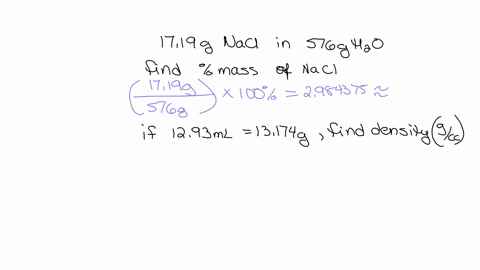 17.19g NaCl in 576g H2O
find % mass of NaCl
(17.19g / 576g) × 100% = 2.984375 ≈
if 12.93mL = 13.174g, find density (g/cc)